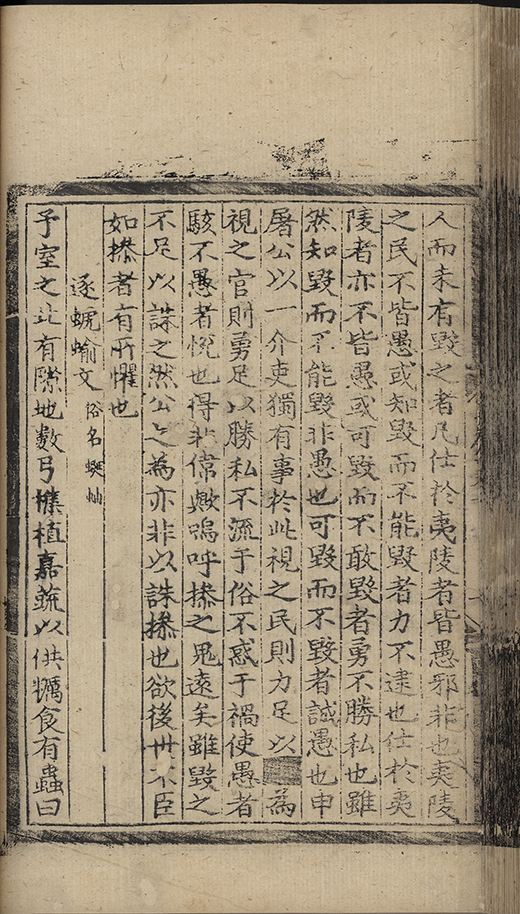 人而未有毀之者凡仕於夷陵者皆愚邪非也夷陵
之民不皆愚或知毀而不能毀者力不逮也仕於夷
陵者亦不皆愚或可毀而不敢毀者勇不勝私也雖
然知毀而不能毀非愚也可毀而不毀者誠愚也申
屠公以一介吏獨有事於此視之民則力足以 為
視之官則勇足以勝私不流于俗不惑于禍使愚者
駭不愚者悅也得非偉歟嗚呼摻之鬼遠矣雖毀之
不足以誅之然公之為亦非以誅摻也欲後世不臣
如摻者有所懼也
逐蜺蝓文 俗名蜒蚰
予室之北有隙地數弓雜植嘉蔬以供糲食有蟲曰